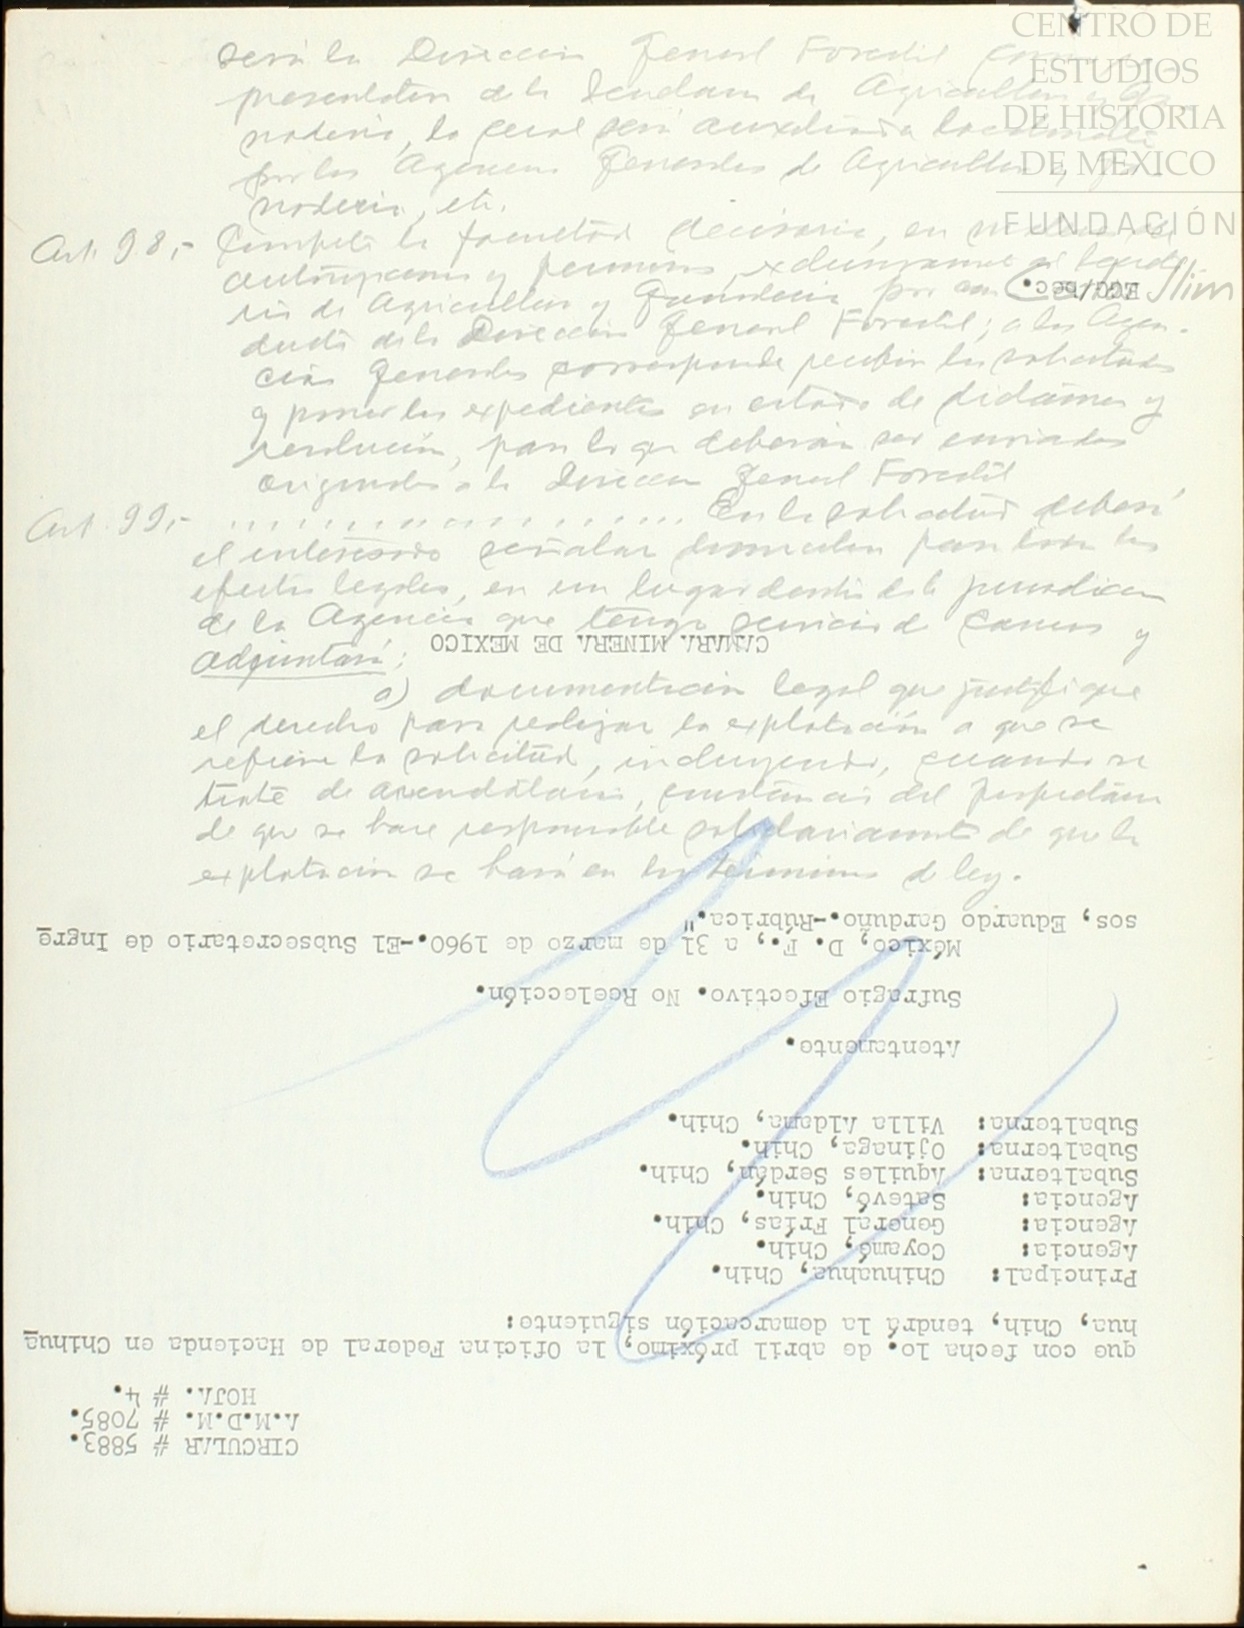 CENTRO DE
ESTUDIOS
DE HISTORIA
DE MÉXICO
FUNDACIÓN
Carlos Slim
será la Dirección General Forestal como re-
presentation de la Secretaria de Agricultura y Ga-
nadería, la cual será auxiliada
por las Agencias Generales de Agricultura y Ga-
nadería, etc.
Art. 98,- Compete la facultad decisoria, en
autorizaciones y permisos, exclusivamente a la Secreta-
ria de Agricultura y Ganaderia por con-
ducto de la Dirección General Forestal; a las Agen-
cias Generales corresponde recibir las solicitudes
y poner los expedientes en estado de dictamen y
resolución, para lo que deberán ser enviados
originales a la Dirección General Forestal
Art. 99,- .................. En la solicitud deberá
el interesado señalar domicilio para todos los
efectos legales, en un lugar dentro de la jurisdiccion
de la Agencia que tenga servicio de Correos y
adjuntará:
a) documentación legal que justifique
el derecho para realizar la explotación a que se
refiere la solicitud, incluyendo, cuando se
trate de arrendatario, constancia del propietario
de que se hace responsable solidariamente de que la
explotación se hará en los términos de ley.
CIRCULAR # 5883.
A.M.D.M. # 7085.
HOJA. # 4.
que con fecha 1o. de abril próximo, la Oficina Federal de Hacienda en Chihua
hua, Chih, tendrá la demarcación siguiente:
Principal: Chihuahua, Chih.
Agencia: Coyamé, Chih.
Agencia: General Frías, Chih.
Agencia: Satevó, Chih.
Subalterna: Aquiles Serdán, Chih.
Subalterna: Ojinaga, Chih.
Subalterna: Villa Aldama, Chih.
Atentamente.
Sufragio Efectivo. No Reelección.
México, D. F., a 31 de marzo de 1960.-El Subsecretario de Ingre
sos, Eduardo Garduño.-Rúbrica."
CAMARA MINERA DE MEXICO